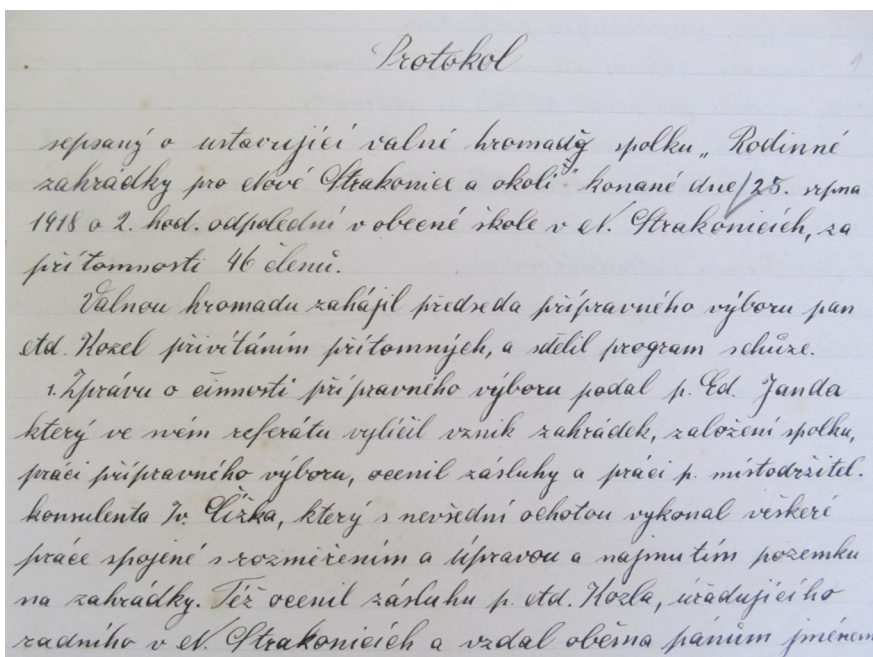 Protokol
1
sepsaný o ustavující valné hromadě spolku „Rodinné
zahrádky pro Nové Strakonice a okolí" konané dne 25. srpna
1918 o 2. hod. odpolední v obecné škole v N. Strakonicích, za
přítomnosti 46 členů.
Valnou hromadu zahájil předseda přípravného výboru pan
Ad. Kozel přivítáním přítomných, a sdělil program schůze.
1. Zprávu o činnosti přípravného výboru podal p. Ed. Janda
který ve svém referátu vylíčil vznik zahrádek, založení spolku,
práci přípravného výboru, ocenil zásluhy a práci p. místodržitel.
konsulenta Žižka, který s nevšední ochotou vykonal veškeré
práce spojené s rozměřením a úpravou a najmutím pozemku
na zahrádky. Též ocenil zásluhu p. Ad. Kozla, úřadujícího
radního v N. Strakonicích a vzdal oběma pánům jménem